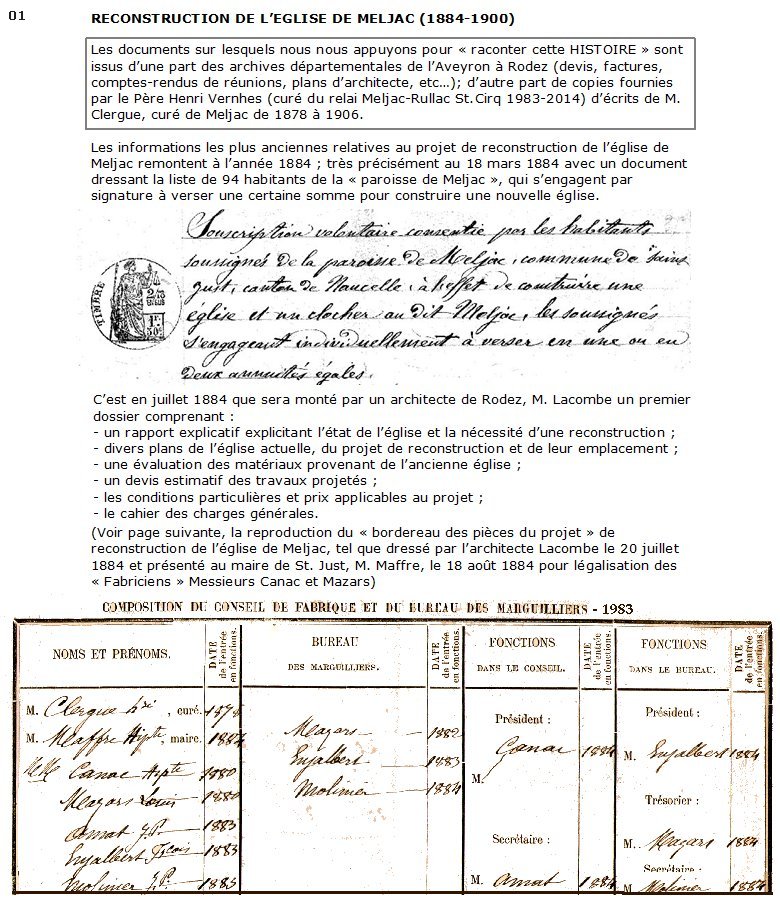 01
RECONSTRUCTION DE L’EGLISE DE MELJAC (1884-1900)
Les documents sur lesquels nous nous appuyons pour « raconter cette HISTOIRE » sont
issus d’une part des archives départementales de l’Aveyron à Rodez (devis, factures,
comptes-rendus de réunions, plans d’architecte, etc…); d’autre part de copies fournies
par le Père Henri Vernhes (curé du relai Meljac-Rullac St.Cirq 1983-2014) d’écrits de M.
Clergue, curé de Meljac de 1878 à 1906.
Les informations les plus anciennes relatives au projet de reconstruction de l’église de
Meljac remontent à l’année 1884 ; très précisément au 18 mars 1884 avec un document
dressant la liste de 94 habitants de la « paroisse de Meljac », qui s’engagent par
signature à verser une certaine somme pour construire une nouvelle église.
Souscription volontaire consentie par les habitants
soussignés de la paroisse de Meljac, commune de Saint
Just, canton de Naucelle, à l'effet de construire une
église et un clocher au dit Meljac, les soussignés
s'engageant individuellement à verser en une ou en
deux annuités égales.
TIMBRE
C’est en juillet 1884 que sera monté par un architecte de Rodez, M. Lacombe un premier
dossier comprenant :
- un rapport explicatif explicitant l’état de l’église et la nécessité d’une reconstruction ;
- divers plans de l’église actuelle, du projet de reconstruction et de leur emplacement ;
- une évaluation des matériaux provenant de l’ancienne église ;
- un devis estimatif des travaux projetés ;
- les conditions particulières et prix applicables au projet ;
- le cahier des charges générales.
(Voir page suivante, la reproduction du « bordereau des pièces du projet » de
reconstruction de l’église de Meljac, tel que dressé par l’architecte Lacombe le 20 juillet
1884 et présenté au maire de St. Just, M. Maffre, le 18 août 1884 pour légalisation des
« Fabriciens » Messieurs Canac et Mazars)
COMPOSITION DU CONSEIL DE FABRIQUE ET DU BUREAU DES MARGUILLIERS - 1983
NOMS ET PRÉNOMS.
DATE de l'entrée en fonctions.
BUREAU
DES MARGUILLIERS.
DATE de l'entrée en fonctions.
FONCTIONS
DANS LE CONSEIL.
DATE de l'entrée en fonctions.
FONCTIONS
DANS LE BUREAU.
DATE de l'entrée en fonctions.
M. Clergue , curé. 1878
M. Maffre Hypte, maire. 1884
MM Canac Hypte 1880
Mazars Louis 1880
Amat J.P. 1883
Enjalbert Fçois 1883
Molinier J.P. 1885
Mazars 1882
Enjalbert 1883
Molinier 1884
Président :
Canac 1884
M.
Secrétaire :
M. Amat 1884
Président :
M. Enjalbert 1884
Trésorier :
M. Mazars 1884
Secrétaire :
M. Molinier 1884